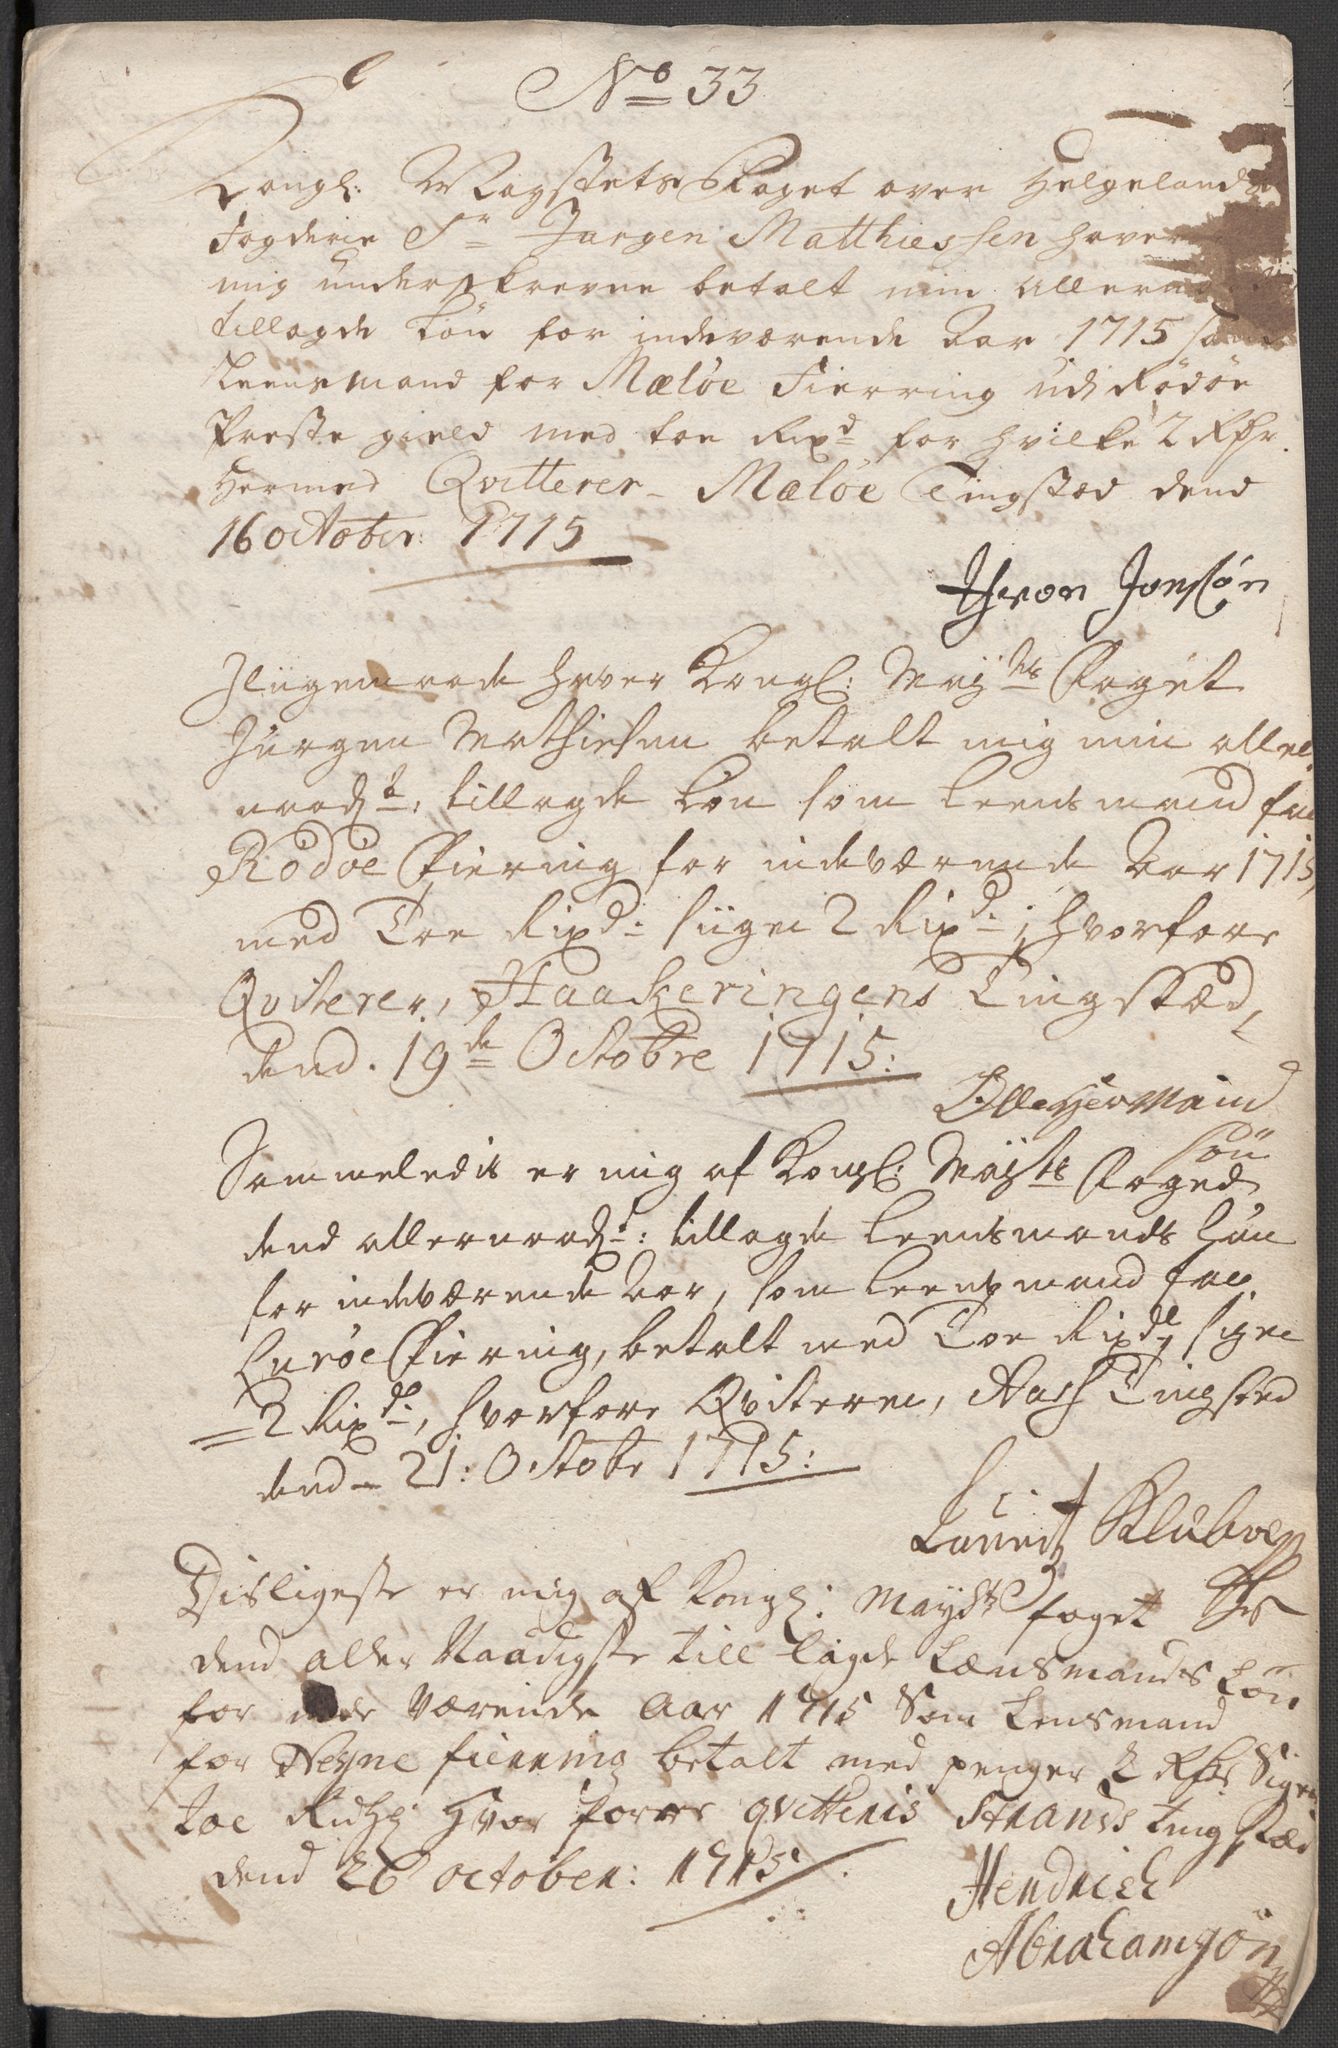 No 33
Kongl: Maystets Foget over Helgelands
Fogderie Sr Jørgen Matthiessen haver
mig underskrevne betalt min allernaa
tillagde Løn for indeværende Aar 1715 som
Leensmand for Meløe Fierring udi Rødøe
Præste gield med toe Rixd for hvilke 2 Rdr
Hermed Qvitterer Meløe Tingstæd dend
16 october: 1715
Jonsøn
Iligemaade haver Kongl: Mayts Foget
Jürgen Mathiesen betalt mig min aller
naadst: tillagde Løn som Leensmand for
Rødøe Fiering for indeværende Aar 1715,
med Toe Rixd: siiger 2 Rixd:, hvorfore
Qviterer, Haacheringens Tingstæd,
dend. 19de Octobre 1715:
Olle Hermaind
søn
Sammeledis er mig af Kongl: Mayts Foged
dend allernaadst: tillagde Leensmands Løn
for indeværende Aar, som Leensmand for
Lurøe Fiering, betalt med Toe Rixdl, siger
2 Rixdr, hvorfore Qviterer, Tingsted
dend 21: Octobr 1715:
Lauritz
Disligeste er mig af Kongl: Mayds foget
dend aller Naadigste till lagde Lænsmands Løn
for inde værende Aar 1715 Som Lensmand
for Nesne fierring betalt med penger 2 Rdr Siger
toe Ridl Hvor forre qvitteris Strands ting stæd
dend 26 october: 1715
Hendrich
Abrahamsøn